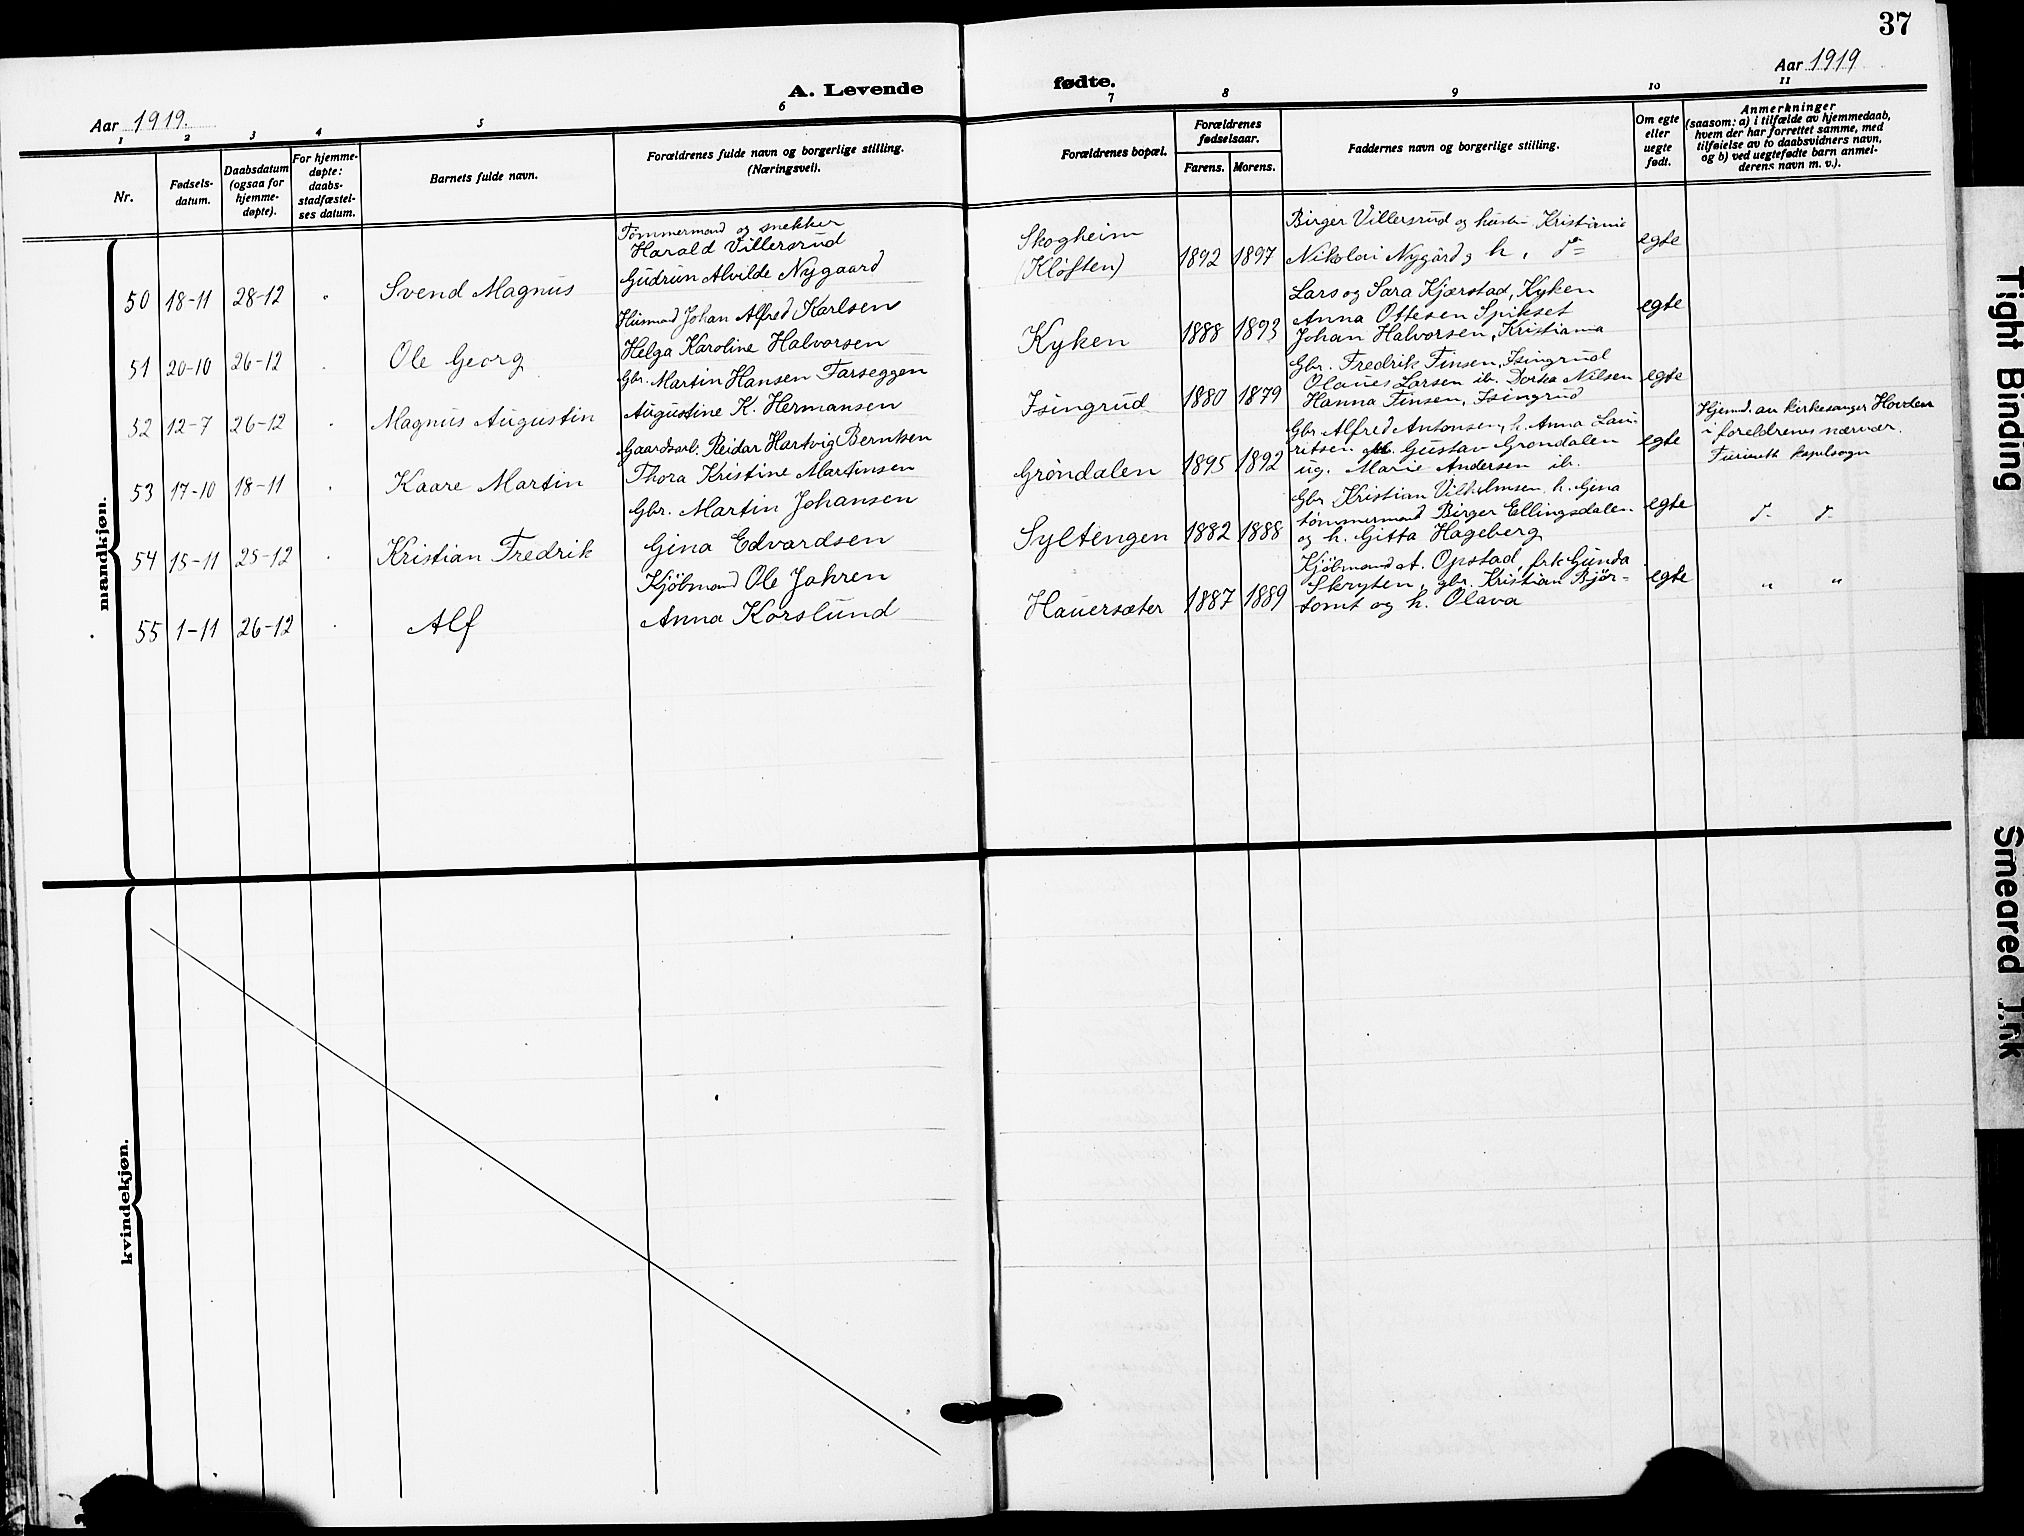 37
A. Levende fødte.
Aar 1919.
Aar 1919
1 2 3 4 5 6 7 8 9 10 11
Nr.
Fødsels-
datum.
Daabsdatum
(ogsaa for
hjemme-
døpte).
For hjemme-
døpte:
daabs-
stadfæstel-
ses datum.
Barnets fulde navn.
Forældrenes fulde navn og borgerlige stilling.
(Næringsvei).
Forældrenes bopæl.
Forældrenes
fødselsaar.
Farens. Morens.
Faddernes navn og borgerlige stilling.
Om egte
eller
uegte
født.
Anmerkninger
(saasom: a) i tilfælde av hjemmedaab,
hvem der har forrettet samme, med
tilføielse av to daabsvidners navn,
og b) ved uegtefødte barn anmel-
derens navn m. v.).
mandkjøn.
50 18-11 28-12 Svend Magnus
Tømmermand og snekker
Harald Villersrud
Gudrun Alvilde Nygaard
Skogheim
(Kløften)
1892 1897
Birger Villersrud og hustru Kristiania
Nikolai Nygård, h.
egte
51 20-10 26-12 Ole Georg
Husmand Johan Alfred Karlsen
Helga Karoline Halvorsen
Kyken
1888 1893
Lars og Sara Kjærstad, Kyken
Anna Ottesen Spikset
Johan Halvorsen, Kristiania
egte
52 12-7 26-12 Magnus Augustin
Gbr. Martin Hansen Farseggen
Augustine K. Hermansen
Isingrud
1880 1879
Gbr. Fredrik Finsen, Isingrud
Olaues Larsen ib. Dorthea Nilsen
Hanna Finsen, Isingrud
egte
53 17-10 18-11 Kaare Martin
Gaardsarb. Reidar Hartvig Berntsen
Thora Kristine Martinsen
Gröndalen
1895 1892
Gbr Alfred Antonsen, h. Anna Lau-
ritsen Gustav Grøndalen
ug. Marie Andersen ib.
egte
Hjemd. av kirkesanger Hovden
i foreldrenes nærvær.
Furuseth kapelsogn
54 15-11 25-12 Kristian Fredrik
Gbr. Martin Johansen
Gina Edvardsen
Syltengen
1882 1888
Gbr Kristian Vilhelmsen h. Gina
tømmermand Birger Ellingsdalen
og h. Gitta Hageberg
egte
55 1-11 26-12 Alf
Kjöbmand Ole Jahren
Anna Korslund
Hauersæter
1887 1889
Kjöbmand A. Opstad, frk Gunda
Skryten, gbr. Kristian Bjør-
tomt og h. Olava
egte
" "
kvindekjøn.
Tight Binding
Smeared Ink